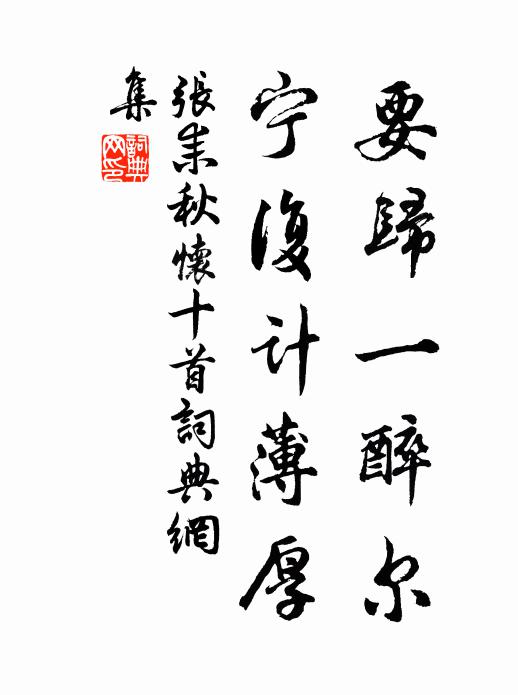 要歸一醉尔
宁復计薄厚
張耒秋懷十首詞典網
集
詞典
网印